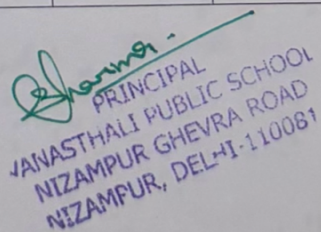 Sharma.
PRINCIPAL
VANASTHALI PUBLIC SCHOOL
NIZAMPUR GHEVRA ROAD
NIZAMPUR, DELHI-110081